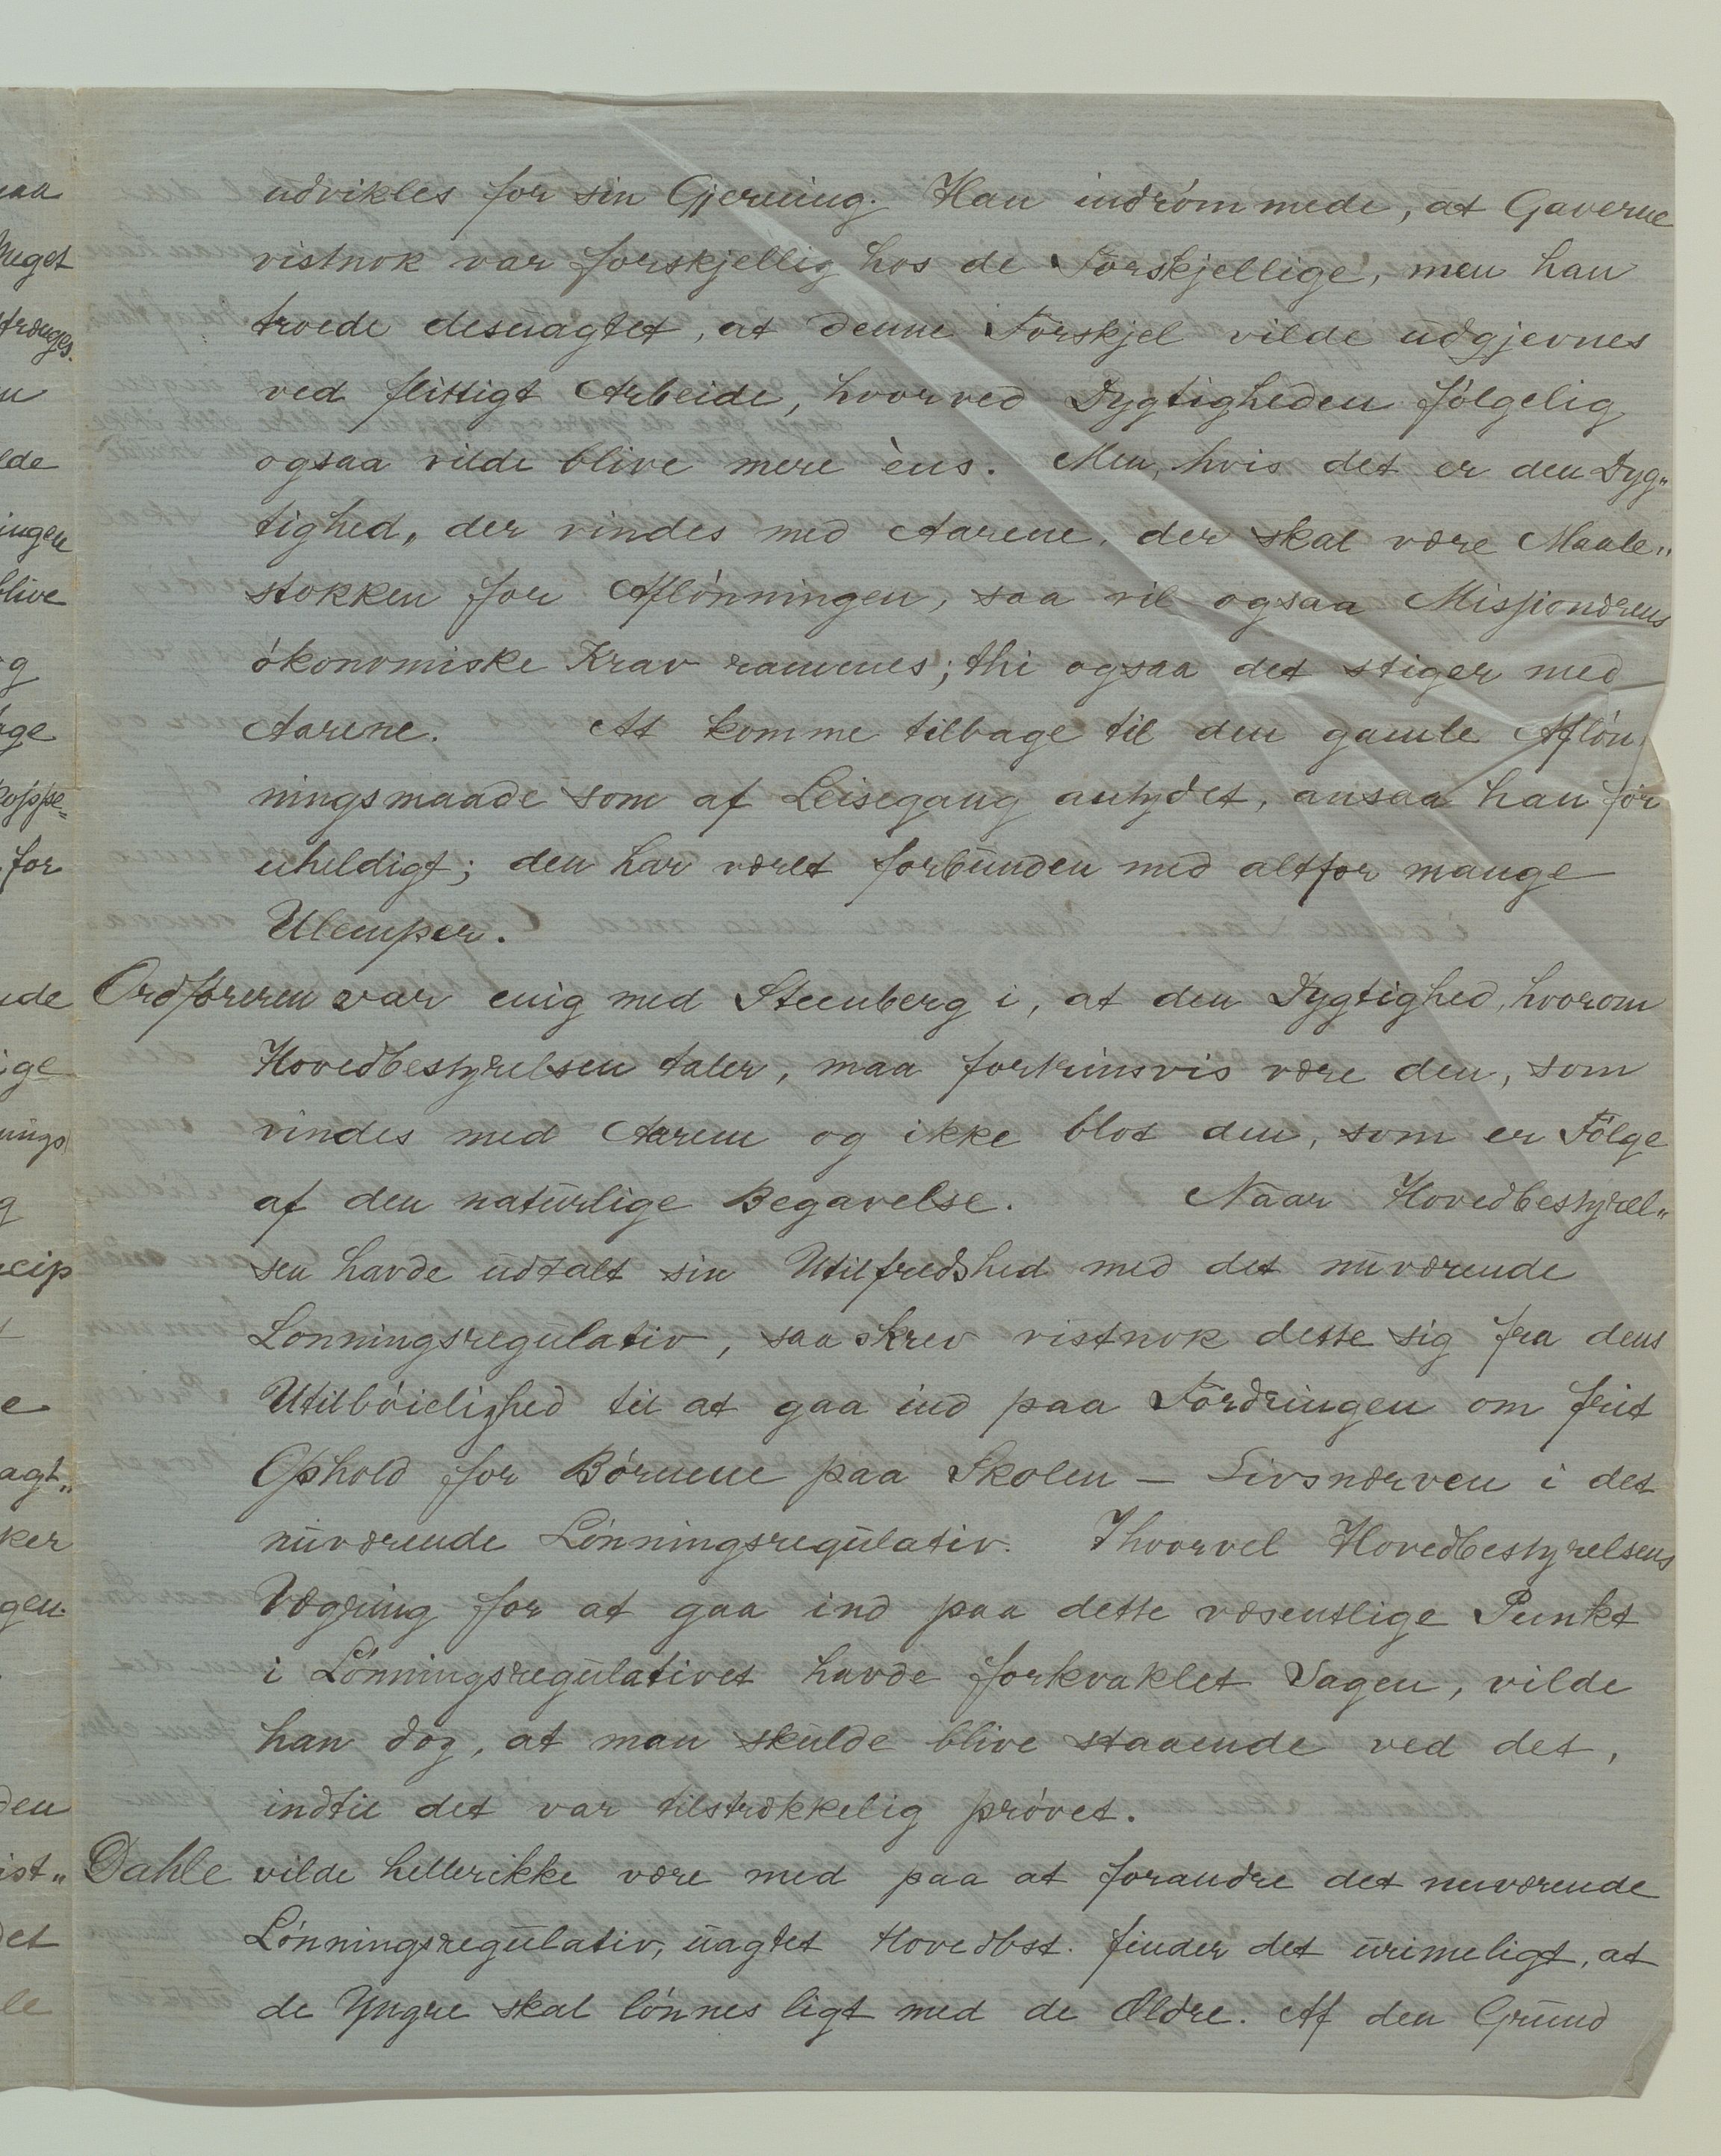 udvikles for sin Gjerning. Han indrömmede, at Gaverne
vistnok var forskjellig hos de Forskjellige, men han
troede desuagtet, at denne Forskjel vilde udgjevnes
ved flittigt Arbeide, hvorved Dygtigheden fölgelig
ogsaa vilde blive mere èns. Men, hvis det er den Dyg„
tighed, der vindes med Aarene, der skal være Maale„
stokken for Aflönningen, saa vil ogsaa Missionærens
ökonomiske Krav rammes; thi ogsaa det stiger med
Aarene. At komme tilbage til den gamle Aflön
ningsmaade som af Leisegang antydet, ansaa han for
uheldigt; den har været forbunden med altfor mange
Ulemper.
Ordföreren var enig med Steenberg i, at den Dygtighed, hvorom
Hovedbestyrelsen taler, maa fortrinsvis være den, som
vindes med Aarene og ikke blot den, som er Fölge
af den naturlige Begavelse. Naar Hovedbestyrel„
sen havde udtalt sin Utilfredshed med det nuværende
Lonningsregulativ, saa skrev vistnok dette sig fra dens
Utilböielighed til at gaa ind paa Fordringen om frit
Ophold for Börnene paa Skolen — Livsnærven i det
nuværende Lönningsregulativ. Ihvorvel Hovedbestyrelsens
Vægring for at gaa ind paa dette væsentlige Punkt
i Lönningsregulativet havde forkvaklet Sagen, vilde
han dog, at man skulde blive staaende ved det,
indtil det var tilstrækkelig prövet.
Dahle vilde hellerikke være med paa at forandre det nuværende
Lönningsregulativ, uagtet Hovedbst. finder det urimeligt, at
de Yngre skal lönnes ligt med de Ældre. Af den Grund